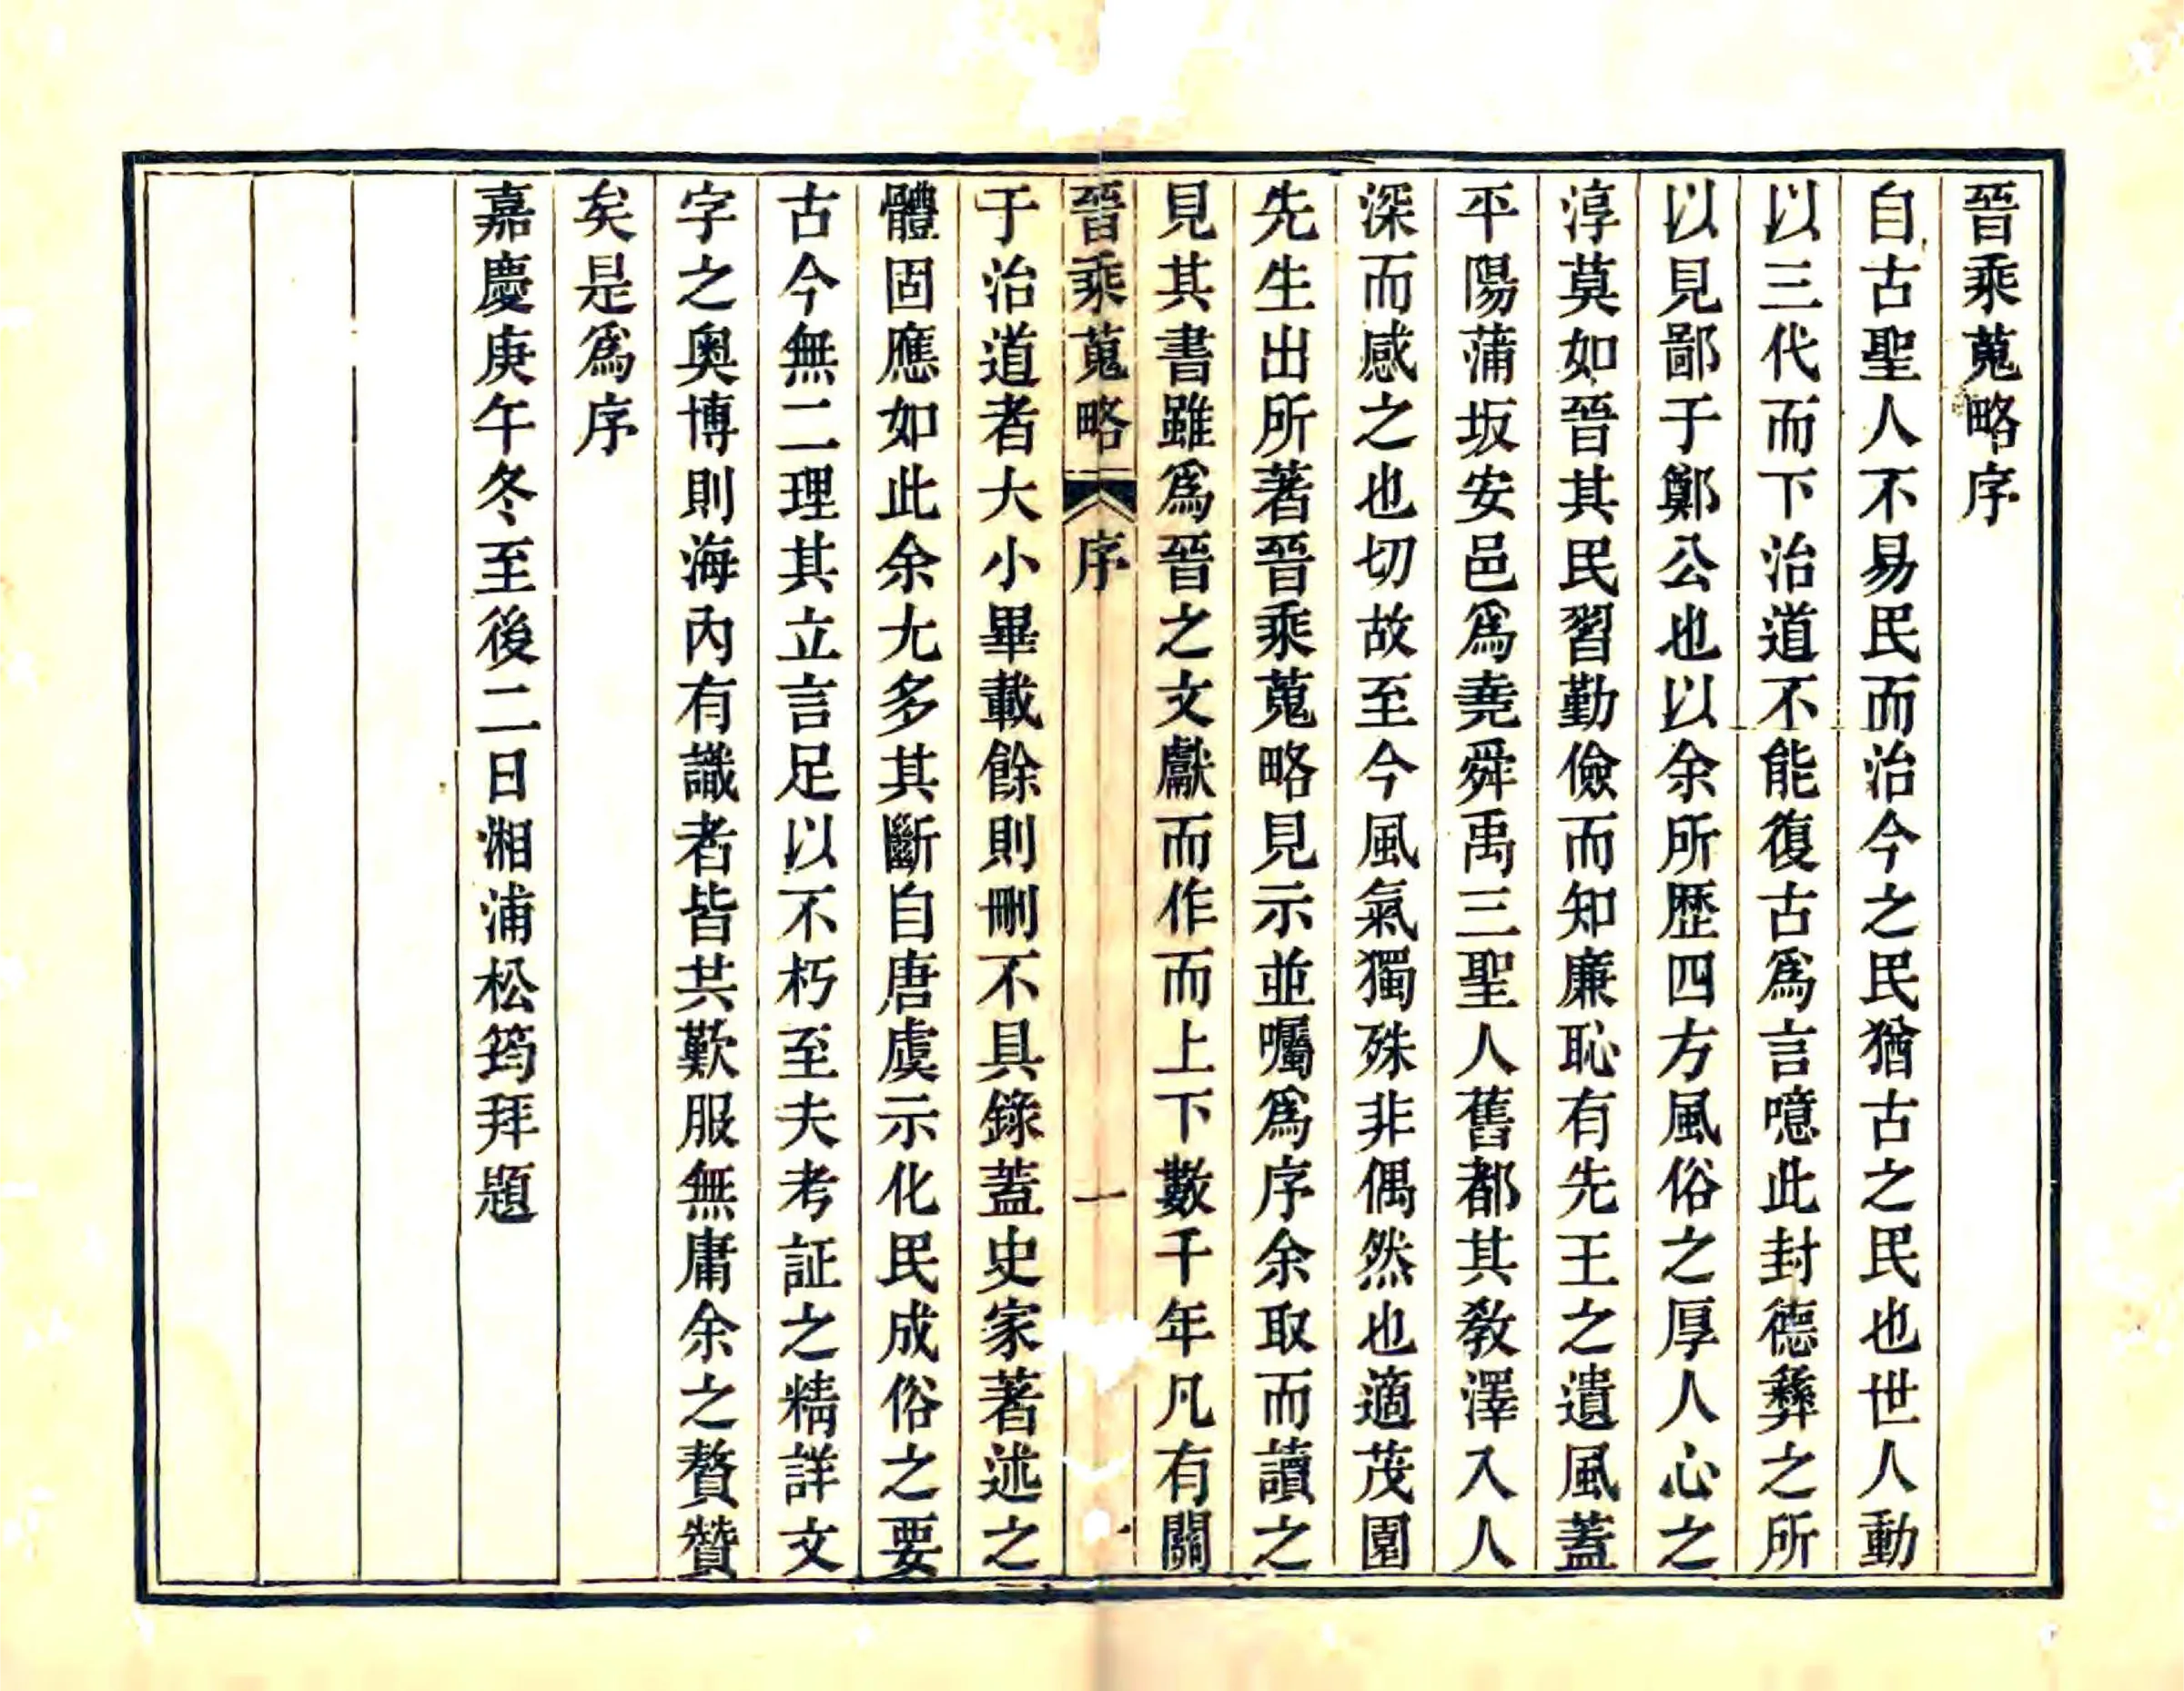 晉乘蒐略序
自古聖人不易民而治今之民猶古之民也世人動
以三代而下治道不能復古爲言噫此封德彝之所
以見鄙于鄭公也以余所歷四方風俗之厚人心之
淳莫如晉其民習勤儉而知廉恥有先王之遺風蓋
平陽蒲坂安邑爲堯舜禹三聖人舊都其教澤入人
深而感之也切故至今風氣獨殊非偶然也適茂園
先生出所著晉乘蒐略見示並囑爲序余取而讀之
見其書雖爲晉之文獻而作而上下數千年凡有關
晉乘蒐略 序 一
于治道者大小畢載餘則刪不具錄蓋史家著述之
體固應如此余尤多其斷自唐虞示化民成俗之要
古今無二理其立言足以不朽至夫考証之精詳文
字之奧博則海內有識者皆共歎服無庸余之贅贊
矣是爲序
嘉慶庚午冬至後二日湘浦松筠拜題